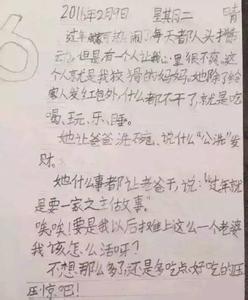 2016年2月9日 星期二 晴
过年可热闹了,每天都人头攒
云,但是,有一个人让我心里很不爽,这
个人就是我狡猾的妈妈,她除了给
家人发红包外,什么都不干了,就是吃
喝、玩、乐、睡。
她让爸爸洗碗,说什么“公洗”发
财。
她什么事都让老爸干,说:“过年就
是要一家之主做事。”
唉唉!要是我以后摊上这么一个老婆
我该怎么活呀?
不想那么多了,还是多吃点好吃的压
压惊吧!